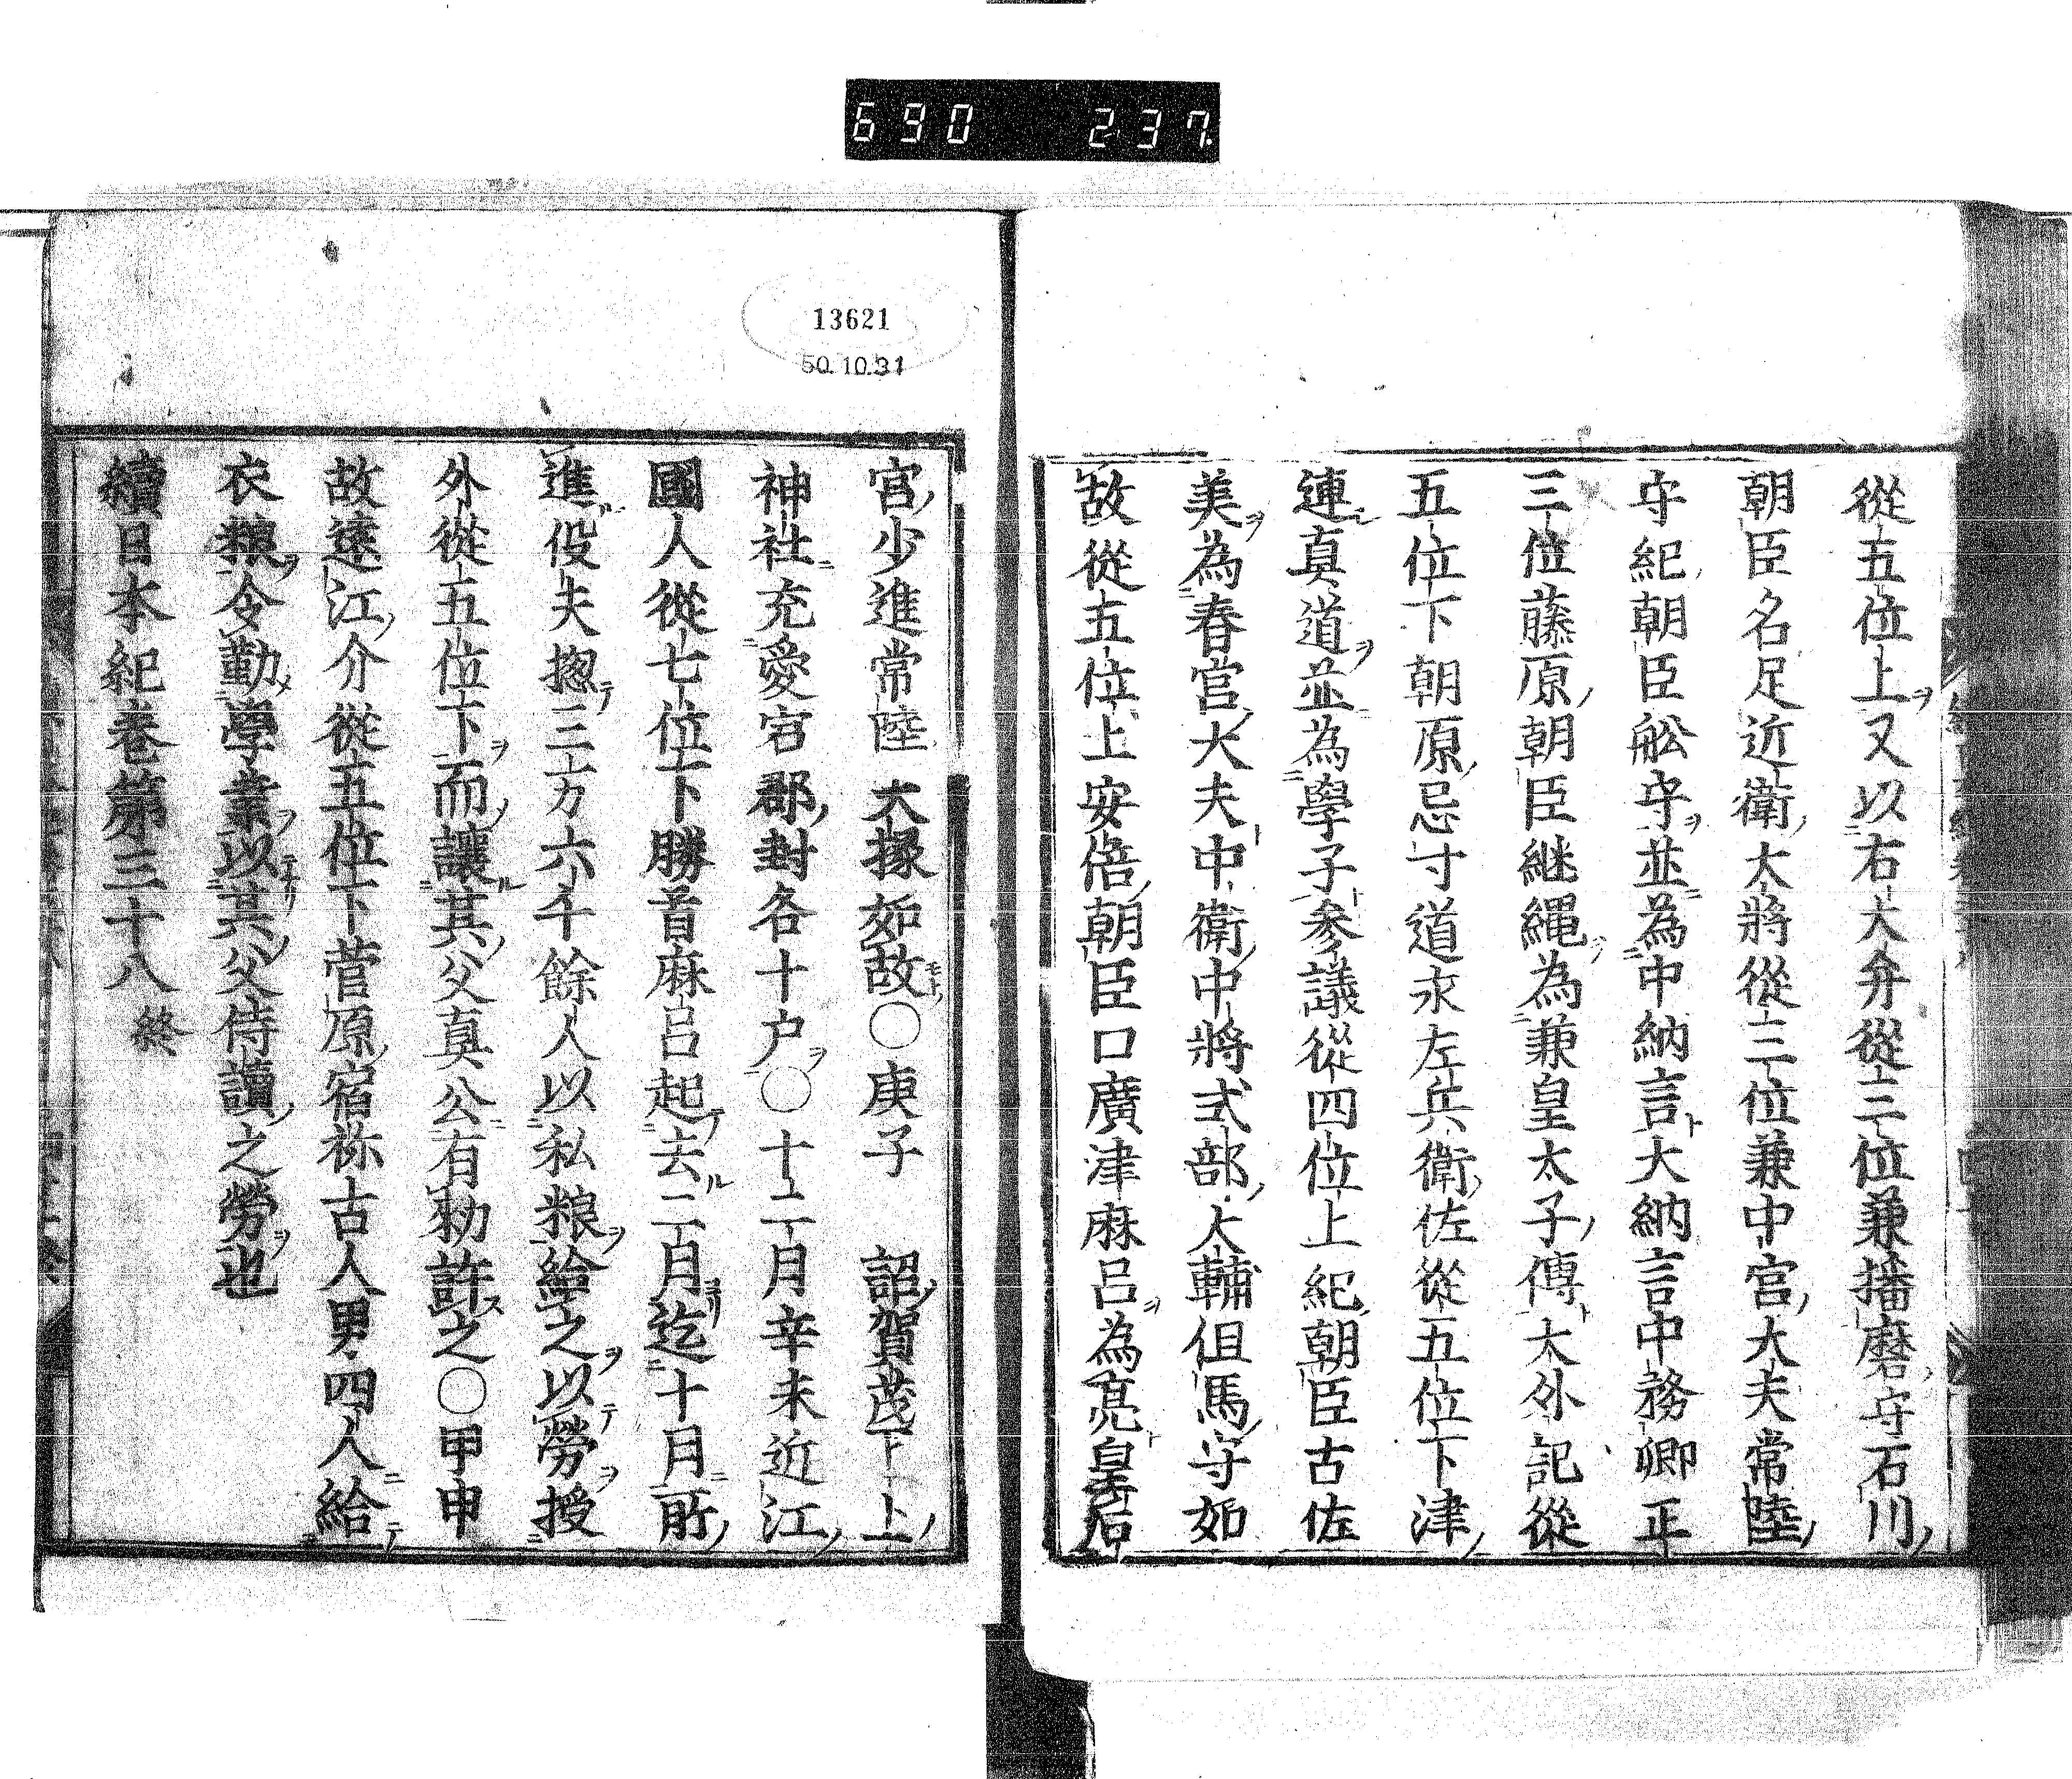 690 237
從五位上又以右大弁從三位兼播磨守石川
朝臣名足近衛大將從三位兼中宮大夫常陸
守紀朝臣舩守並為中納言大納言中務卿正
三位藤原朝臣継繩為兼皇太子傳大外記從
五位下朝原忌寸道永左兵衛佐從五位下津
連真道並為學子參議從四位上紀朝臣古佐
美為春宮大夫中衛中將式部大輔伹馬守如
故從五位上安倍朝臣口廣津麻呂為亮皇后
13621
50.10.31
宮少進常陸大掾如故〇庚子 詔賀茂下上
神社充愛宕郡封各十戸〇十二月辛未近江
國人從七位下勝首麻呂起去二月迄十月所
進役夫揔三万六千餘人以私粮給之以勞授
外從五位下而讓其父真公有勅許之〇甲申
故遠江介從五位下菅原宿祢古人男四人給
衣粮令勤學業以其父侍讀之勞也
續日本紀巻第三十八 終